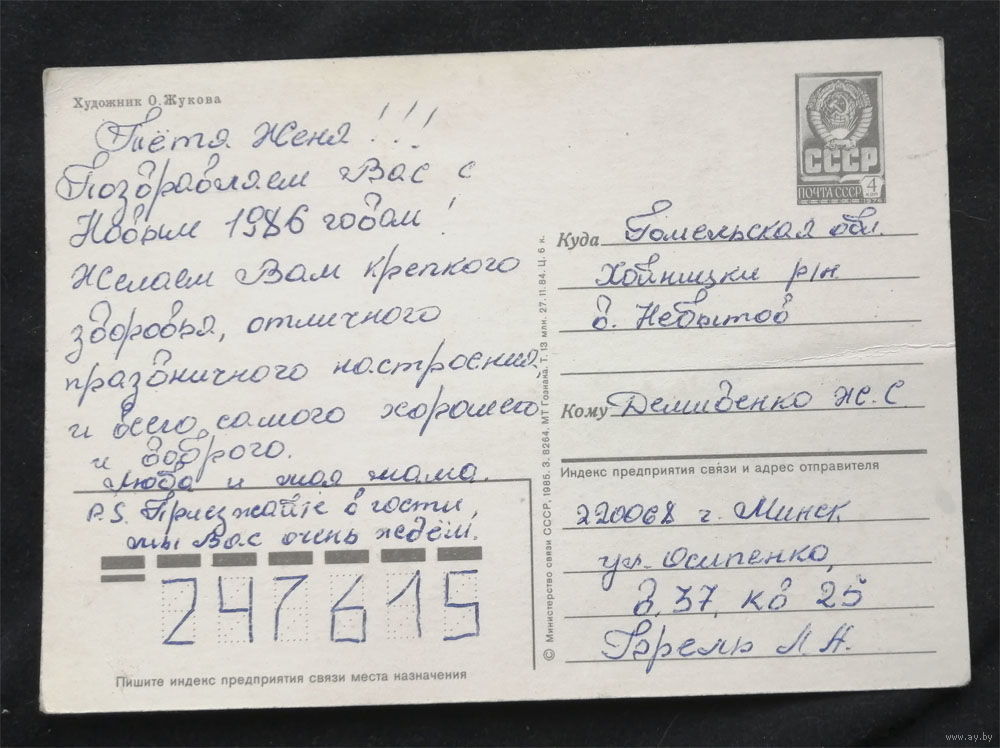 Художник О. Жукова
Тётя Женя!!!
Поздравляем Вас с
Новым 1986 годом!
Желаем Вам крепкого
здоровья, отличного
праздничного настроения,
и всего самого хорошего
и доброго.
Люба и моя мама.
P.S. Приезжайте в гости,
мы Вас очень ждём.
247615
Пишите индекс предприятия связи места назначения
© Министерство связи СССР, 1985. З. 8264. МТ Гознака. Т. 13 млн. 27.11.84. Ц. 6 к.
СССР
ПОЧТА СССР 4
1976
Куда Гомельская обл.
Хойницки р/н
д. Небытов
Кому Демиденко Ж. С.
Индекс предприятия связи и адрес отправителя
220068 г. Минск
ул. Осипенко,
д. 37, кв 25
Л. А.
www.ay.by